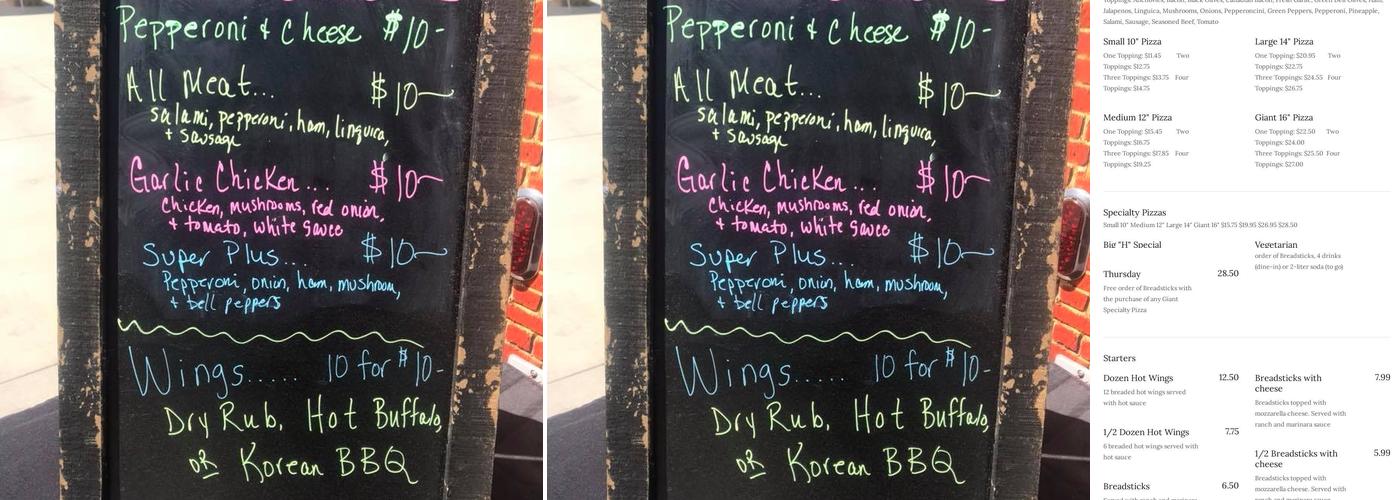 Pepperoni & Cheese $10-
All Meat... $10
salami, pepperoni, ham, linguica,
+ sausage
Garlic Chicken... $10
Chicken, mushrooms, red onion,
+ tomato, white sauce
Super Plus... $10
Pepperoni, onion, ham, mushroom,
+ bell peppers
Wings..... 10 for $10-
Dry Rub, Hot Buffalo,
or Korean BBQ
Pepperoni & Cheese $10-
All Meat... $10
salami, pepperoni, ham, linguica,
+ sausage
Garlic Chicken... $10
Chicken, mushrooms, red onion,
+ tomato, white sauce
Super Plus... $10
Pepperoni, onion, ham, mushroom,
+ bell peppers
Wings..... 10 for $10-
Dry Rub, Hot Buffalo,
or Korean BBQ
Jalapenos, Linguica, Mushrooms, Onions, Pepperoncini, Green Peppers, Pepperoni, Pineapple,
Salami, Sausage, Seasoned Beef, Tomato
Small 10" Pizza
One Topping: $11.45 Two
Toppings: $12.75
Three Toppings: $13.75 Four
Toppings: $14.75
Large 14" Pizza
One Topping: $20.95 Two
Toppings: $22.75
Three Toppings: $24.55 Four
Toppings: $26.75
Medium 12" Pizza
One Topping: $15.45 Two
Toppings: $16.75
Three Toppings: $17.85 Four
Toppings: $19.25
Giant 16" Pizza
One Topping: $22.50 Two
Toppings: $24.00
Three Toppings: $25.50 Four
Toppings: $27.00
Specialty Pizzas
Small 10" Medium 12" Large 14" Giant 16" $15.75 $19.95 $26.95 $28.50
Big "H" Special
Vegetarian
order of Breadsticks, 4 drinks
(dine-in) or 2-liter soda (to go)
Thursday 28.50
Free order of Breadsticks with
the purchase of any Giant
Specialty Pizza
Starters
Dozen Hot Wings 12.50
12 breaded hot wings served
with hot sauce
Breadsticks with 7.99
cheese
Breadsticks topped with
mozzarella cheese. Served with
ranch and marinara sauce
1/2 Dozen Hot Wings 7.75
6 breaded hot wings served with
hot sauce
1/2 Breadsticks with 5.99
cheese
Breadsticks topped with
Breadsticks 6.50